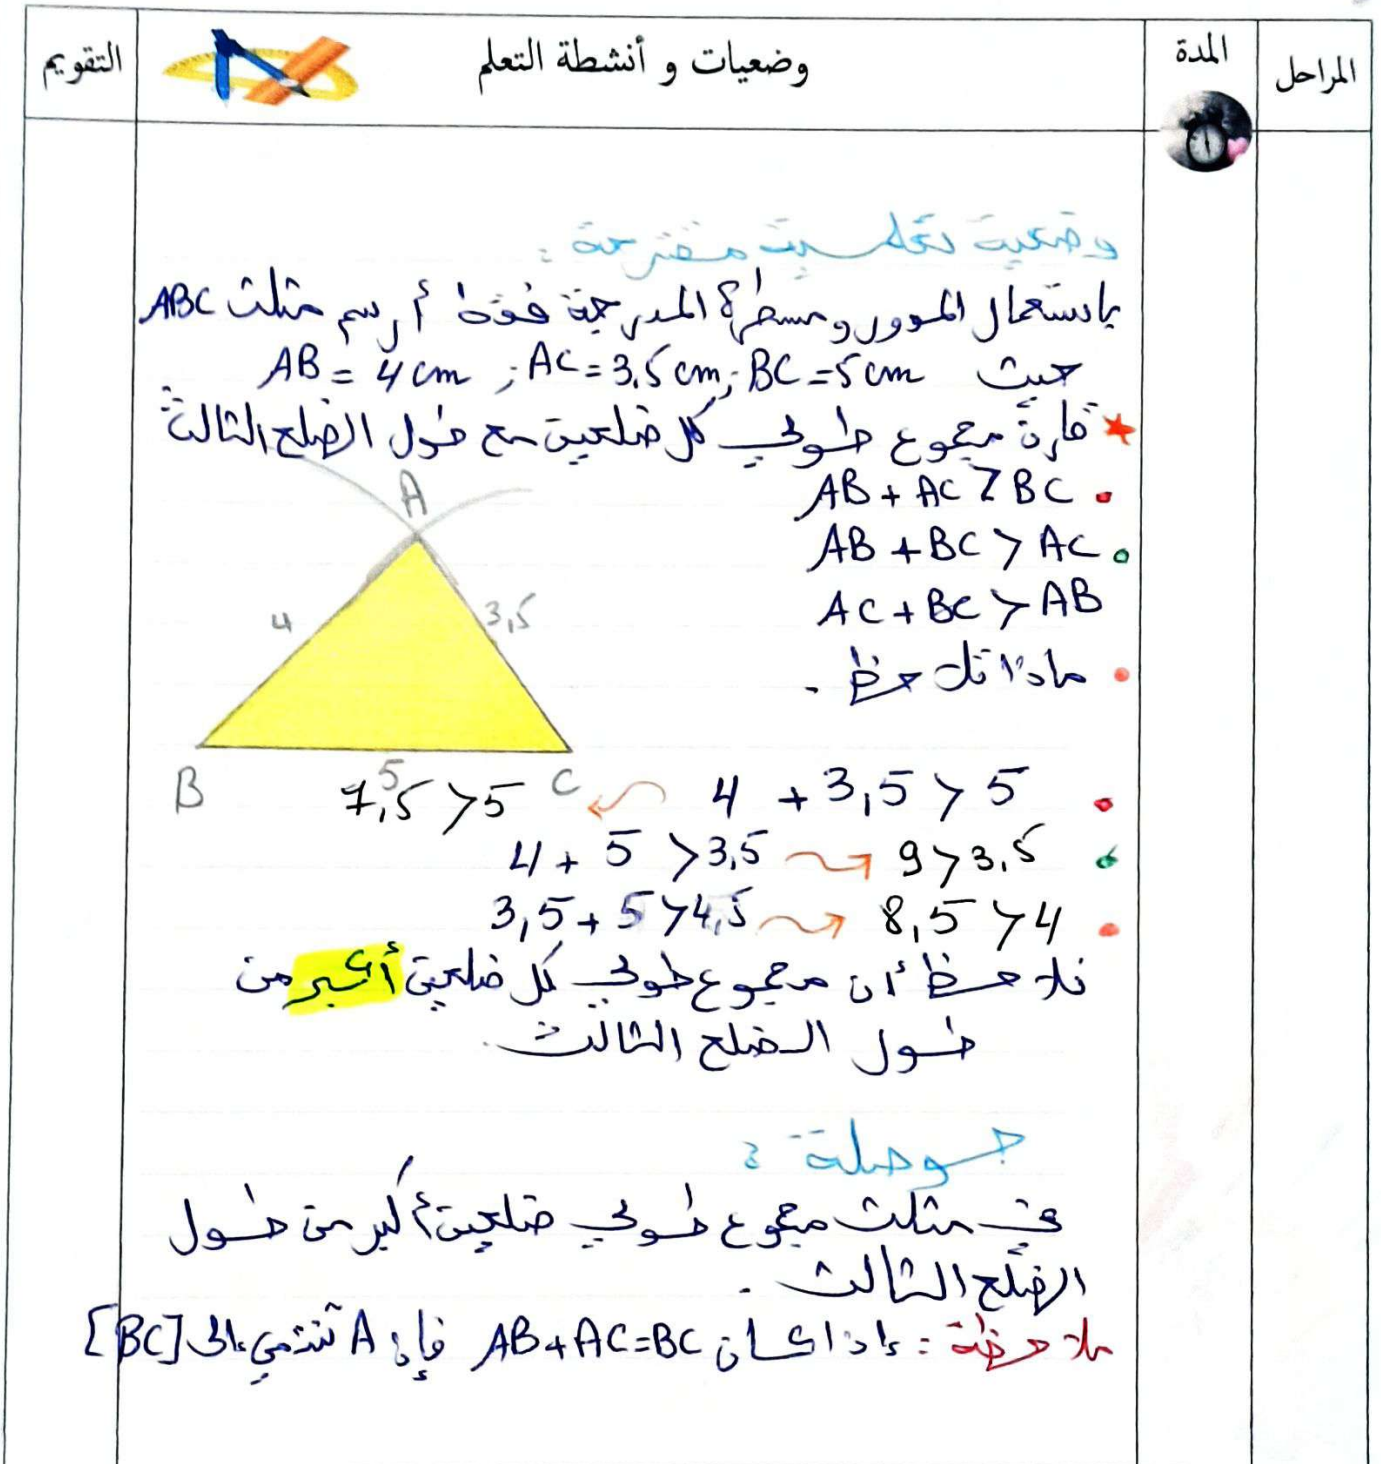 المراحل
المدة
وضعيات و أنشطة التعلم
التقويم
وضعية تعلمية مقترحة :
باستعمال المدور ومسطرة المدرجة فقط أرسم مثلث ABC
حيث AB = 4 cm ; AC = 3.5 cm ; BC = 5 cm
قارن مجموع طولي كل ضلعين مع طول الضلع الثالث :
AB + AC > BC
AB + BC > AC
AC + BC > AB
ماذا تلاحظ .
A
4
3,5
B
5
C
4 + 3,5 > 5
7,5 > 5
4 + 5 > 3,5
9 > 3,5
3,5 + 5 > 4,5
8,5 > 4
نلاحظ أن مجموع طولي كل ضلعين أكبر من
طول الضلع الثالث .
حوصلة :
في مثلث مجموع طولي ضلعين أكبر من طول
الضلع الثالث .
ملاحظة : إذا كان AB+AC=BC فإن A تنتمي إلى [BC]